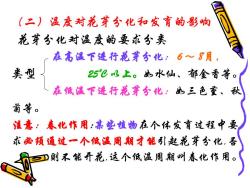 （二）温度对花芽分化和发育的影响
花芽分化对温度的要求分类
在高温下进行花芽分化：6～8月，
类型
25℃以上。如水仙、郁金香等。
在低温下进行花芽分化：如三色堇、秋
菊等。
注意：春化作用：某些植物在个体发育过程中要
求必须通过一个低温周期才能引起花芽分化，否
则不能开花，这个低温周期叫春化作用。